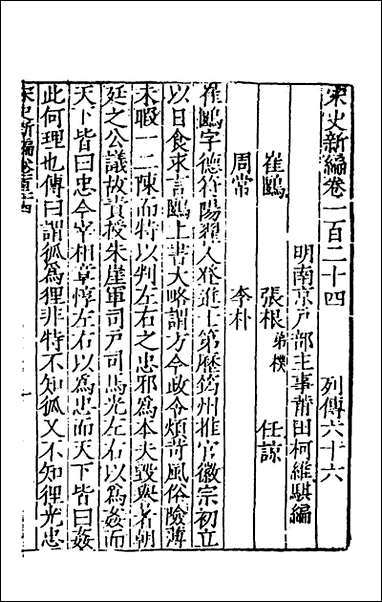 宋史新編卷一百二十四 列傳六十六
明南京戶部主事莆田柯維騏編
崔鶠 張根弟樸 任諒
周常 李朴
崔鶠字德符陽翟人登進士第歷筠州推官徽宗初立
以日食求言鶠上書大略謂方今政令煩苛風俗險薄
未暇一二陳而特以判左右之忠邪為本夫毀與者朝
廷之公議故責授朱崖軍司戶司馬光左右以為姦而
天下皆曰忠今宰相章惇左右以為忠而天下皆曰姦
此何理也傳曰謂狐為狸非特不知狐又不知狸光忠
宋史新編卷一百二十四